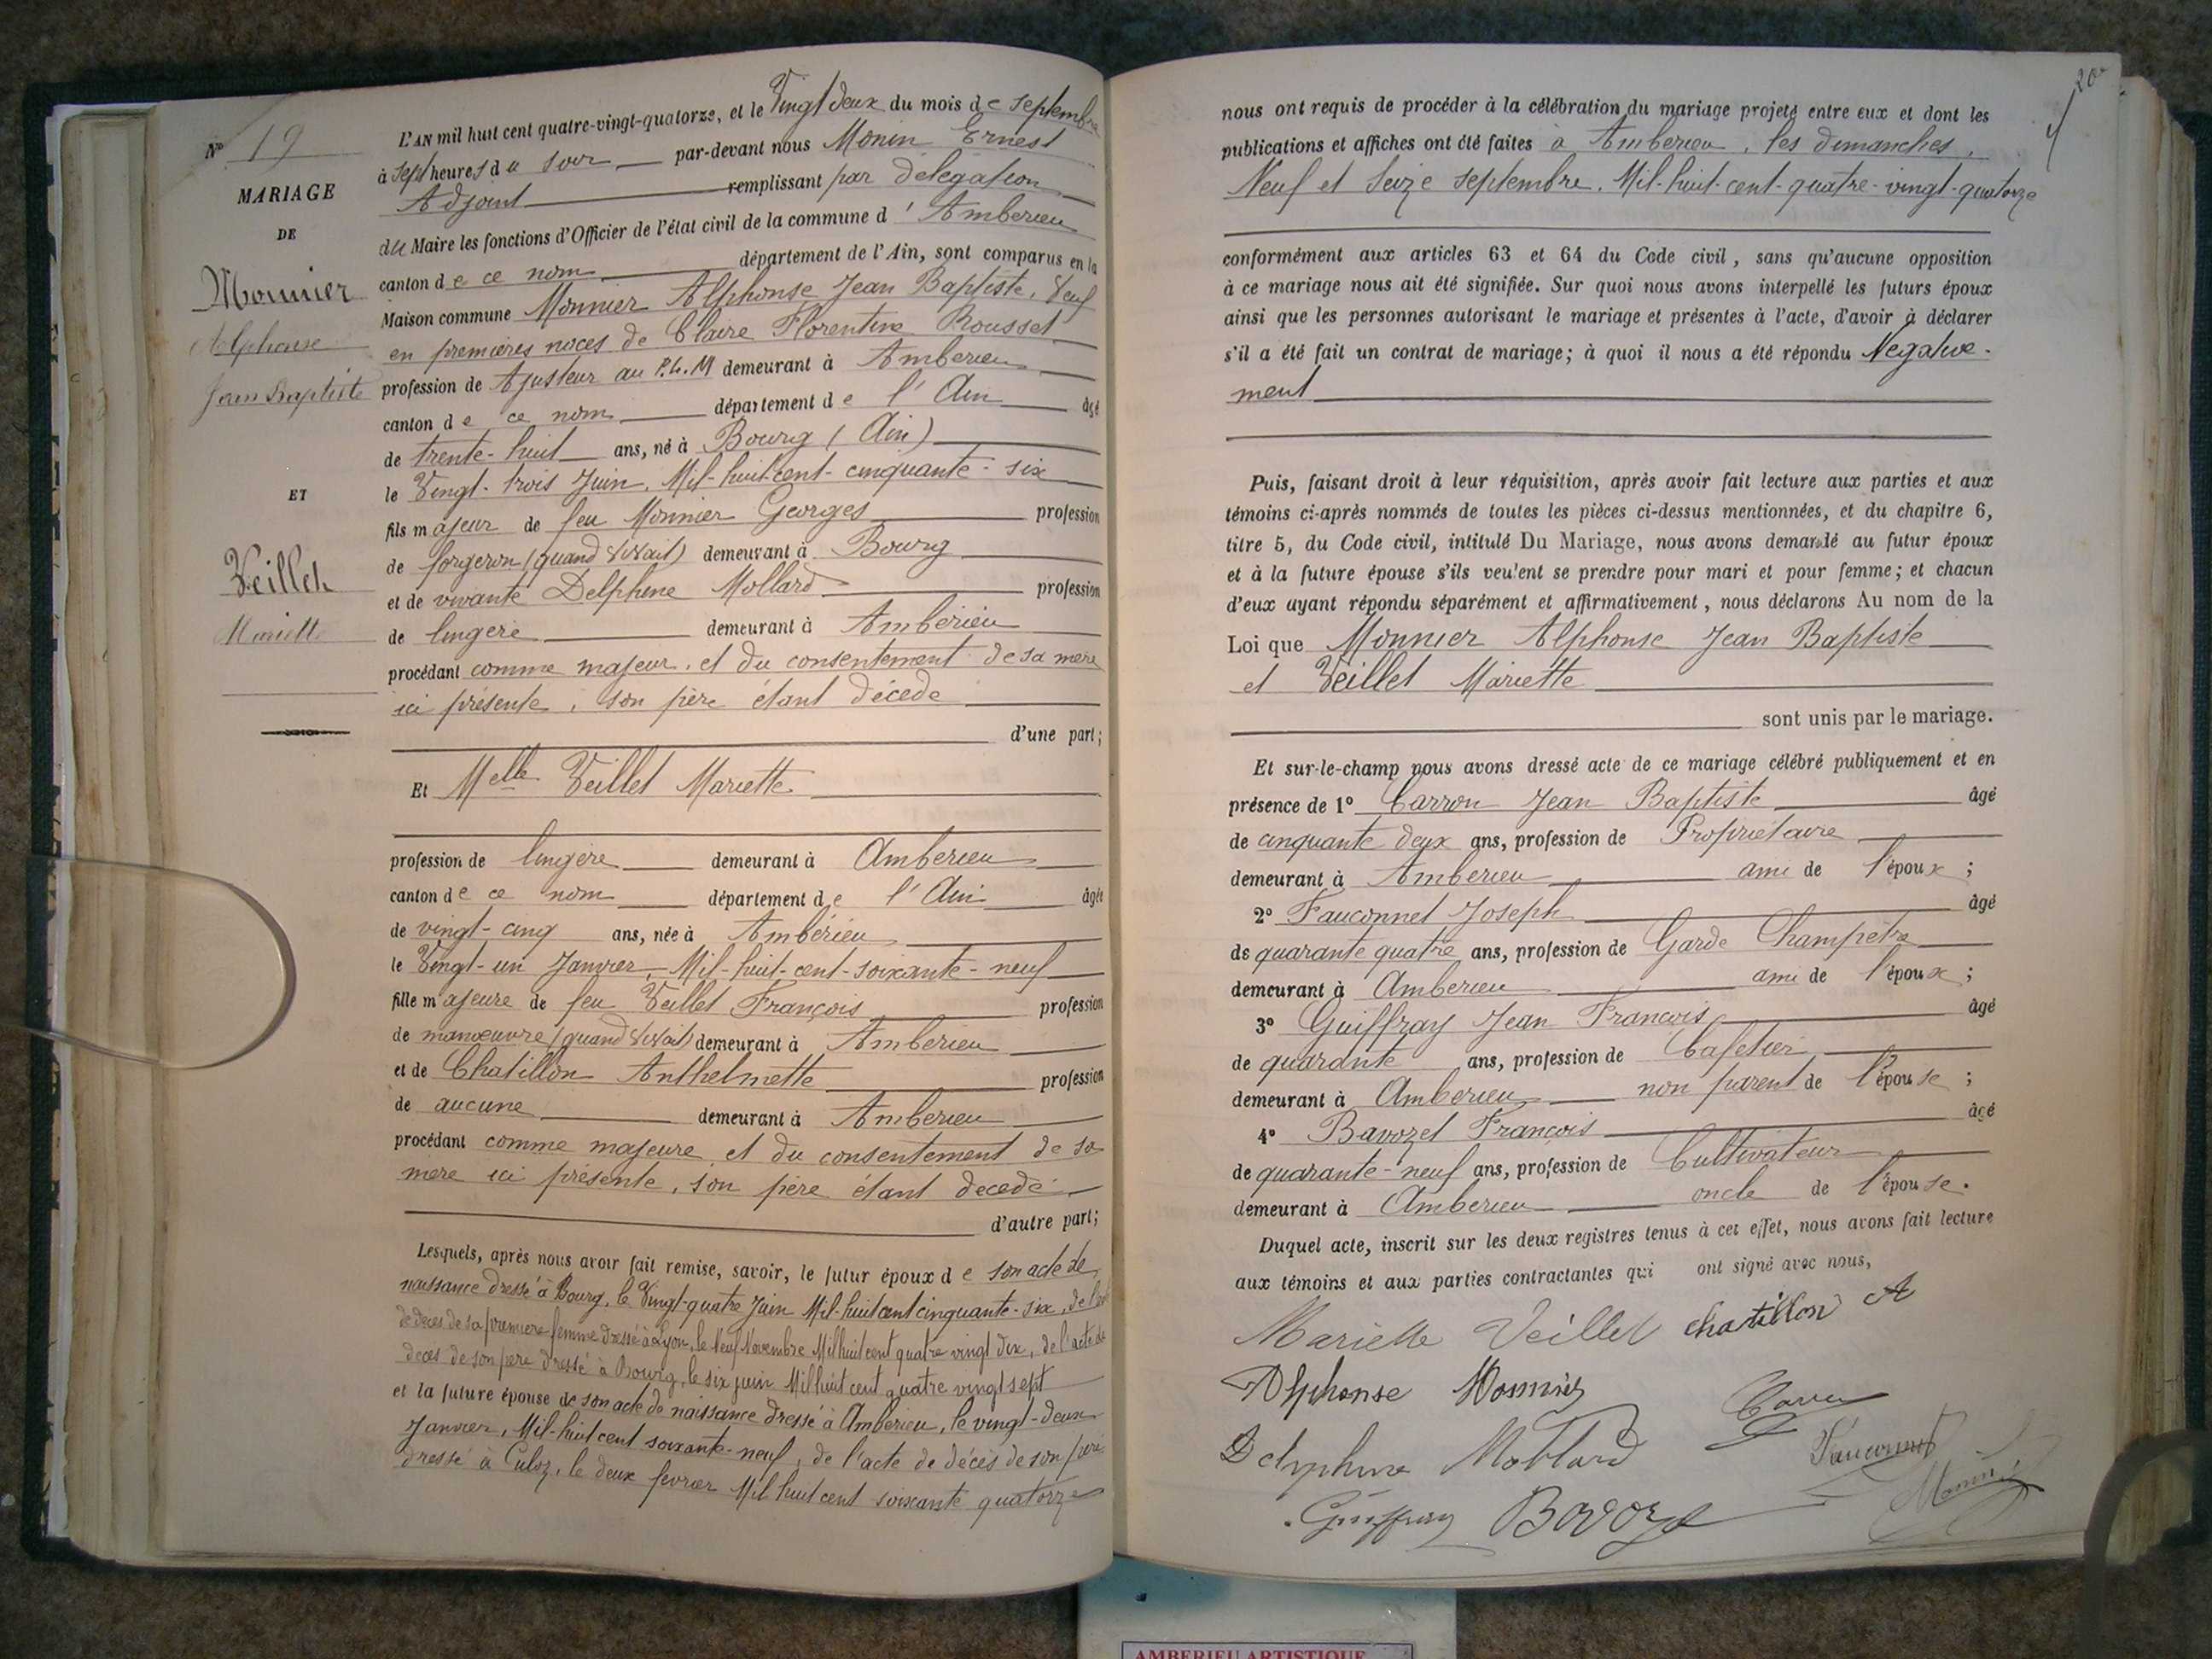 Nº 19
MARIAGE
DE
Monnier
Alphonse
Jean Baptiste
ET
Veillet
Mariette
L'AN mil huit cent quatre-vingt-quatorze, et le Vingt deux du mois de septembre
à sept heures du soir par-devant nous Monin Ernest
Adjoint remplissant par délégation
du Maire les fonctions d'Officier de l'état civil de la commune d'Amberieu
canton de ce nom département de l'Ain, sont comparus en la
Maison commune Monnier Alphonse Jean Baptiste, Veuf
en premières noces de Claire Florentine Rousset
profession de Ajusteur au P.L.M demeurant à Amberieu
canton de ce nom département de l'Ain âgé
de trente-huit ans, né à Bourg (Ain)
le Vingt-trois Juin, Mil-huit-cent-cinquante-six
fils majeur de feu Monnier Georges profession
de forgeron (quand vivait) demeurant à Bourg
et de vivante Delphine Mollard profession
de lingère demeurant à Ambérieu
procédant comme majeur, et du consentement de sa mère
ici présente, son père étant décédé
d'une part;
Et Melle Veillet Mariette
profession de lingère demeurant à Amberieu
canton de ce nom département de l'Ain âgée
de vingt-cinq ans, née à Ambérieu
le Vingt-un Janvier, Mil-huit-cent-soixante-neuf
fille majeure de feu Veillet François profession
de manœuvre (quand vivait) demeurant à Ambérieu
et de Chatillon Anthelmette profession
de aucune demeurant à Amberieu
procédant comme majeure et du consentement de sa
mère ici présente, son père étant décédé
d'autre part;
Lesquels, après nous avoir fait remise, savoir, le futur époux de son acte de
naissance dressé à Bourg, le Vingt-quatre Juin Mil-huit cent cinquante-six, de l'acte
de décès de sa première femme dressé à Lyon, le Neuf Novembre Mil huit cent quatre vingt dix, de l'acte de
décès de son père dressé à Bourg, le six juin Mil huit cent quatre vingt sept
et la future épouse de son acte de naissance dressé à Ambérieu, le vingt-deux
Janvier, Mil-huit cent soixante-neuf, de l'acte de décès de son père
dressé à Culoz, le deux février Mil huit cent soixante quatorze
20
nous ont requis de procéder à la célébration du mariage projeté entre eux et dont les
publications et affiches ont été faites à Amberieu, les dimanches,
Neuf et Seize septembre, Mil-huit-cent-quatre-vingt-quatorze
conformément aux articles 63 et 64 du Code civil, sans qu'aucune opposition
à ce mariage nous ait été signifiée. Sur quoi nous avons interpellé les futurs époux
ainsi que les personnes autorisant le mariage et présentes à l'acte, d'avoir à déclarer
s'il a été fait un contrat de mariage; à quoi il nous a été répondu Negative-
ment
Puis, faisant droit à leur réquisition, après avoir fait lecture aux parties et aux
témoins ci-après nommés de toutes les pièces ci-dessus mentionnées, et du chapitre 6,
titre 5, du Code civil, intitulé Du Mariage, nous avons demandé au futur époux
et à la future épouse s'ils veulent se prendre pour mari et pour femme; et chacun
d'eux ayant répondu séparément et affirmativement, nous déclarons Au nom de la
Loi que Monnier Alphonse Jean Baptiste
et Veillet Mariette
sont unis par le mariage.
Et sur-le-champ nous avons dressé acte de ce mariage célébré publiquement et en
présence de 1º Carron Jean Baptiste âgé
de cinquante deux ans, profession de Propriétaire
demeurant à Amberieu ami de l'époux;
2º Fauconnet Joseph âgé
de quarante quatre ans, profession de Garde Champêtre
demeurant à Amberieu ami de l'époux;
3º Guiffray Jean François âgé
de quarante ans, profession de Cafetier
demeurant à Amberieu non parent de l'épouse;
4º Bavozet François âgé
de quarante-neuf ans, profession de Cultivateur
demeurant à Amberieu oncle de l'épouse.
Duquel acte, inscrit sur les deux registres tenus à cet effet, nous avons fait lecture
aux témoins et aux parties contractantes qui ont signé avec nous,
Mariette Veillet chatillon A
Alphonse Monnier
Delphine Mollard Fauconnet
Guiffray Bavozet Monin
AMBERIEU ARTISTIQUE